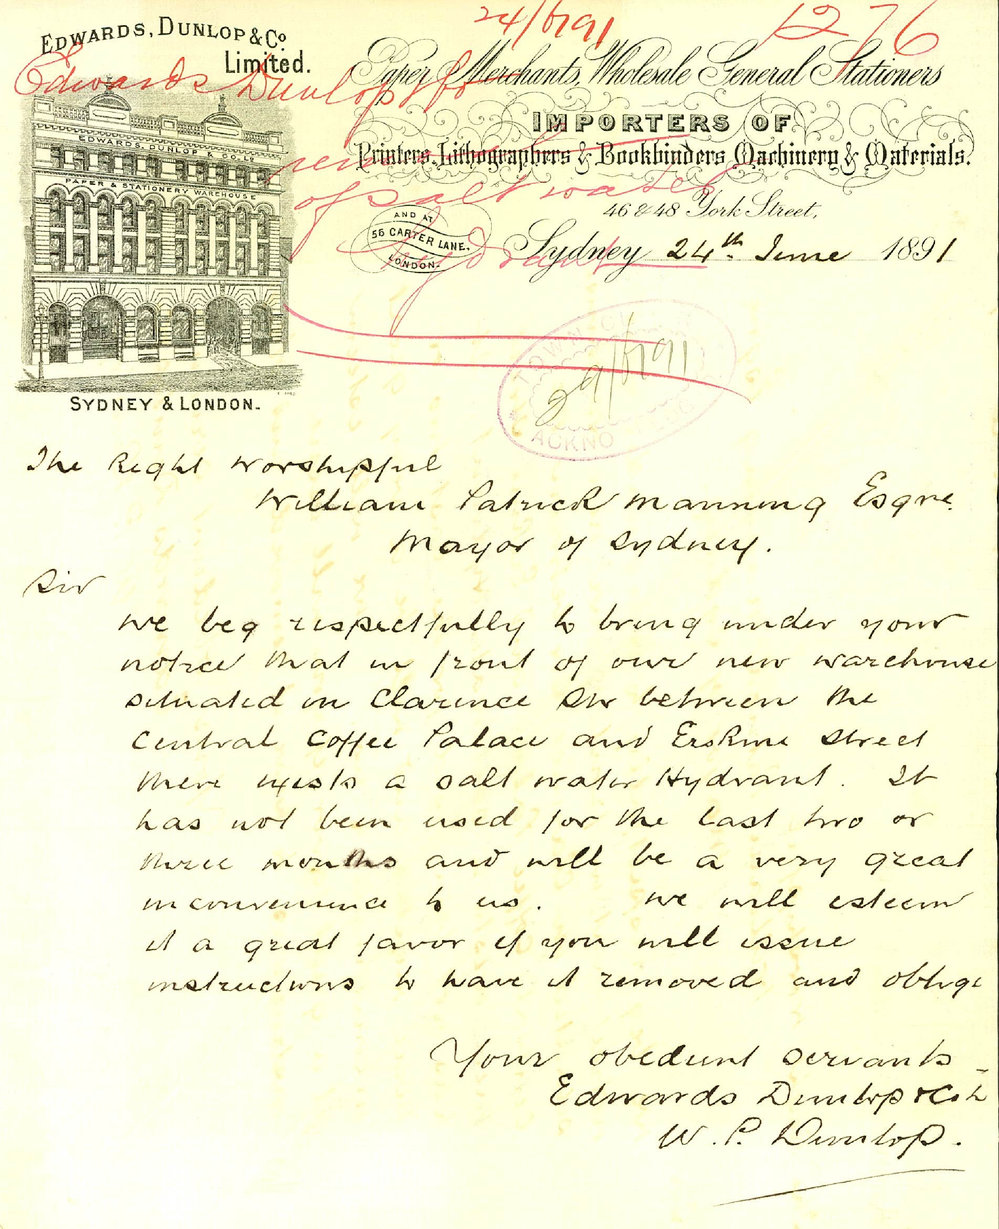 24/6/91
1276
EDWARDS, DUNLOP & Co
Limited.
Edwards Dunlop & Co
Paper Merchants, Wholesale General Stationers
IMPORTERS OF
Printers, Lithographers & Bookbinders Machinery & Materials.
of salt water
Hydrant
46 & 48 York Street,
AND AT
56 CARTER LANE.
LONDON.
Sydney 24th June 1891
EDWARDS, DUNLOP & CO. LD
PAPER & STATIONERY WAREHOUSE
SYDNEY & LONDON.
TOWN CL
29/6/91
ACKNO
The Right Worshipful
William Patrick Manning Esqre.
Mayor of Sydney.
Sir
We beg respectfully to bring under your
notice that in front of our new warehouse
situated in Clarence Str between the
Central Coffee Palace and Erskine Street
there exists a salt water Hydrant. It
has not been used for the last two or
three months and will be a very great
inconvenience to us. We will esteem
it a great favor if you will issue
instructions to have it removed and oblige
Your obedient servants
Edwards Dunlop & Co L
W. P. Dunlop.